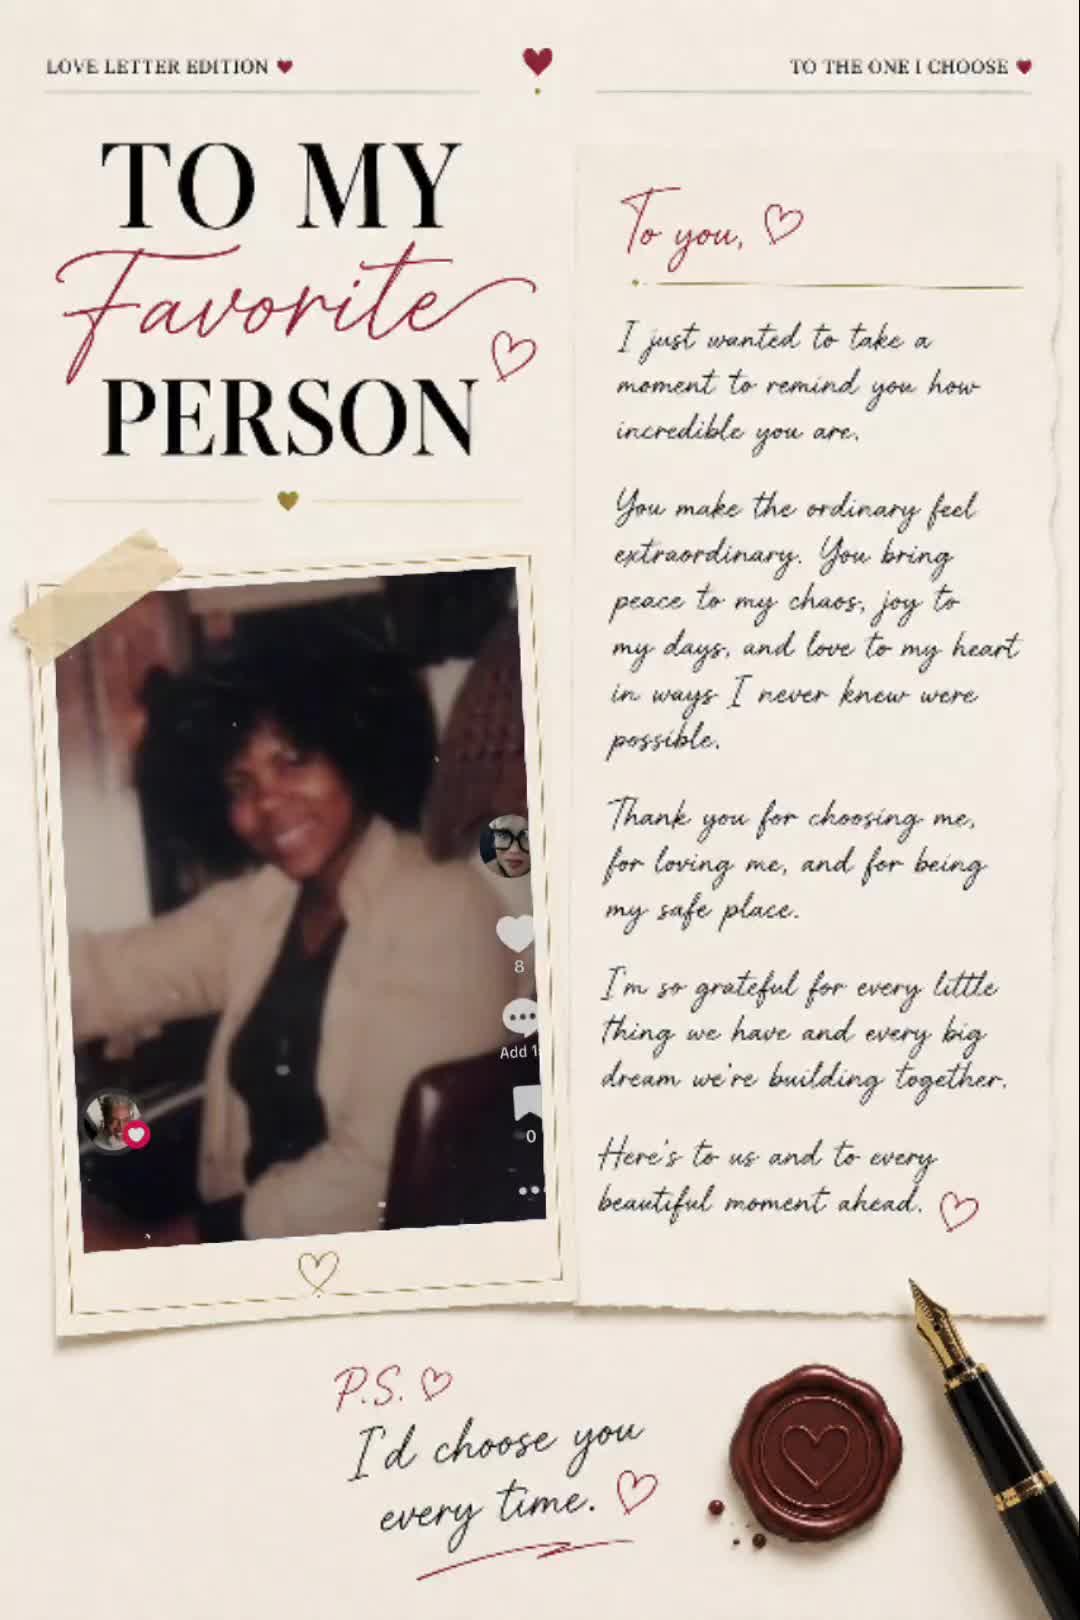 LOVE LETTER EDITION ♥
TO THE ONE I CHOOSE ♥
TO MY
Favorite
PERSON
To you,
I just wanted to take a
moment to remind you how
incredible you are.
You make the ordinary feel
extraordinary. You bring
peace to my chaos, joy to
my days, and love to my heart
in ways I never knew were
possible.
Thank you for choosing me,
for loving me, and for being
my safe place.
I'm so grateful for every little
thing we have and every big
dream we're building together.
Here's to us and to every
beautiful moment ahead.
8
Add 1
0
P.S.
I'd choose you
every time.